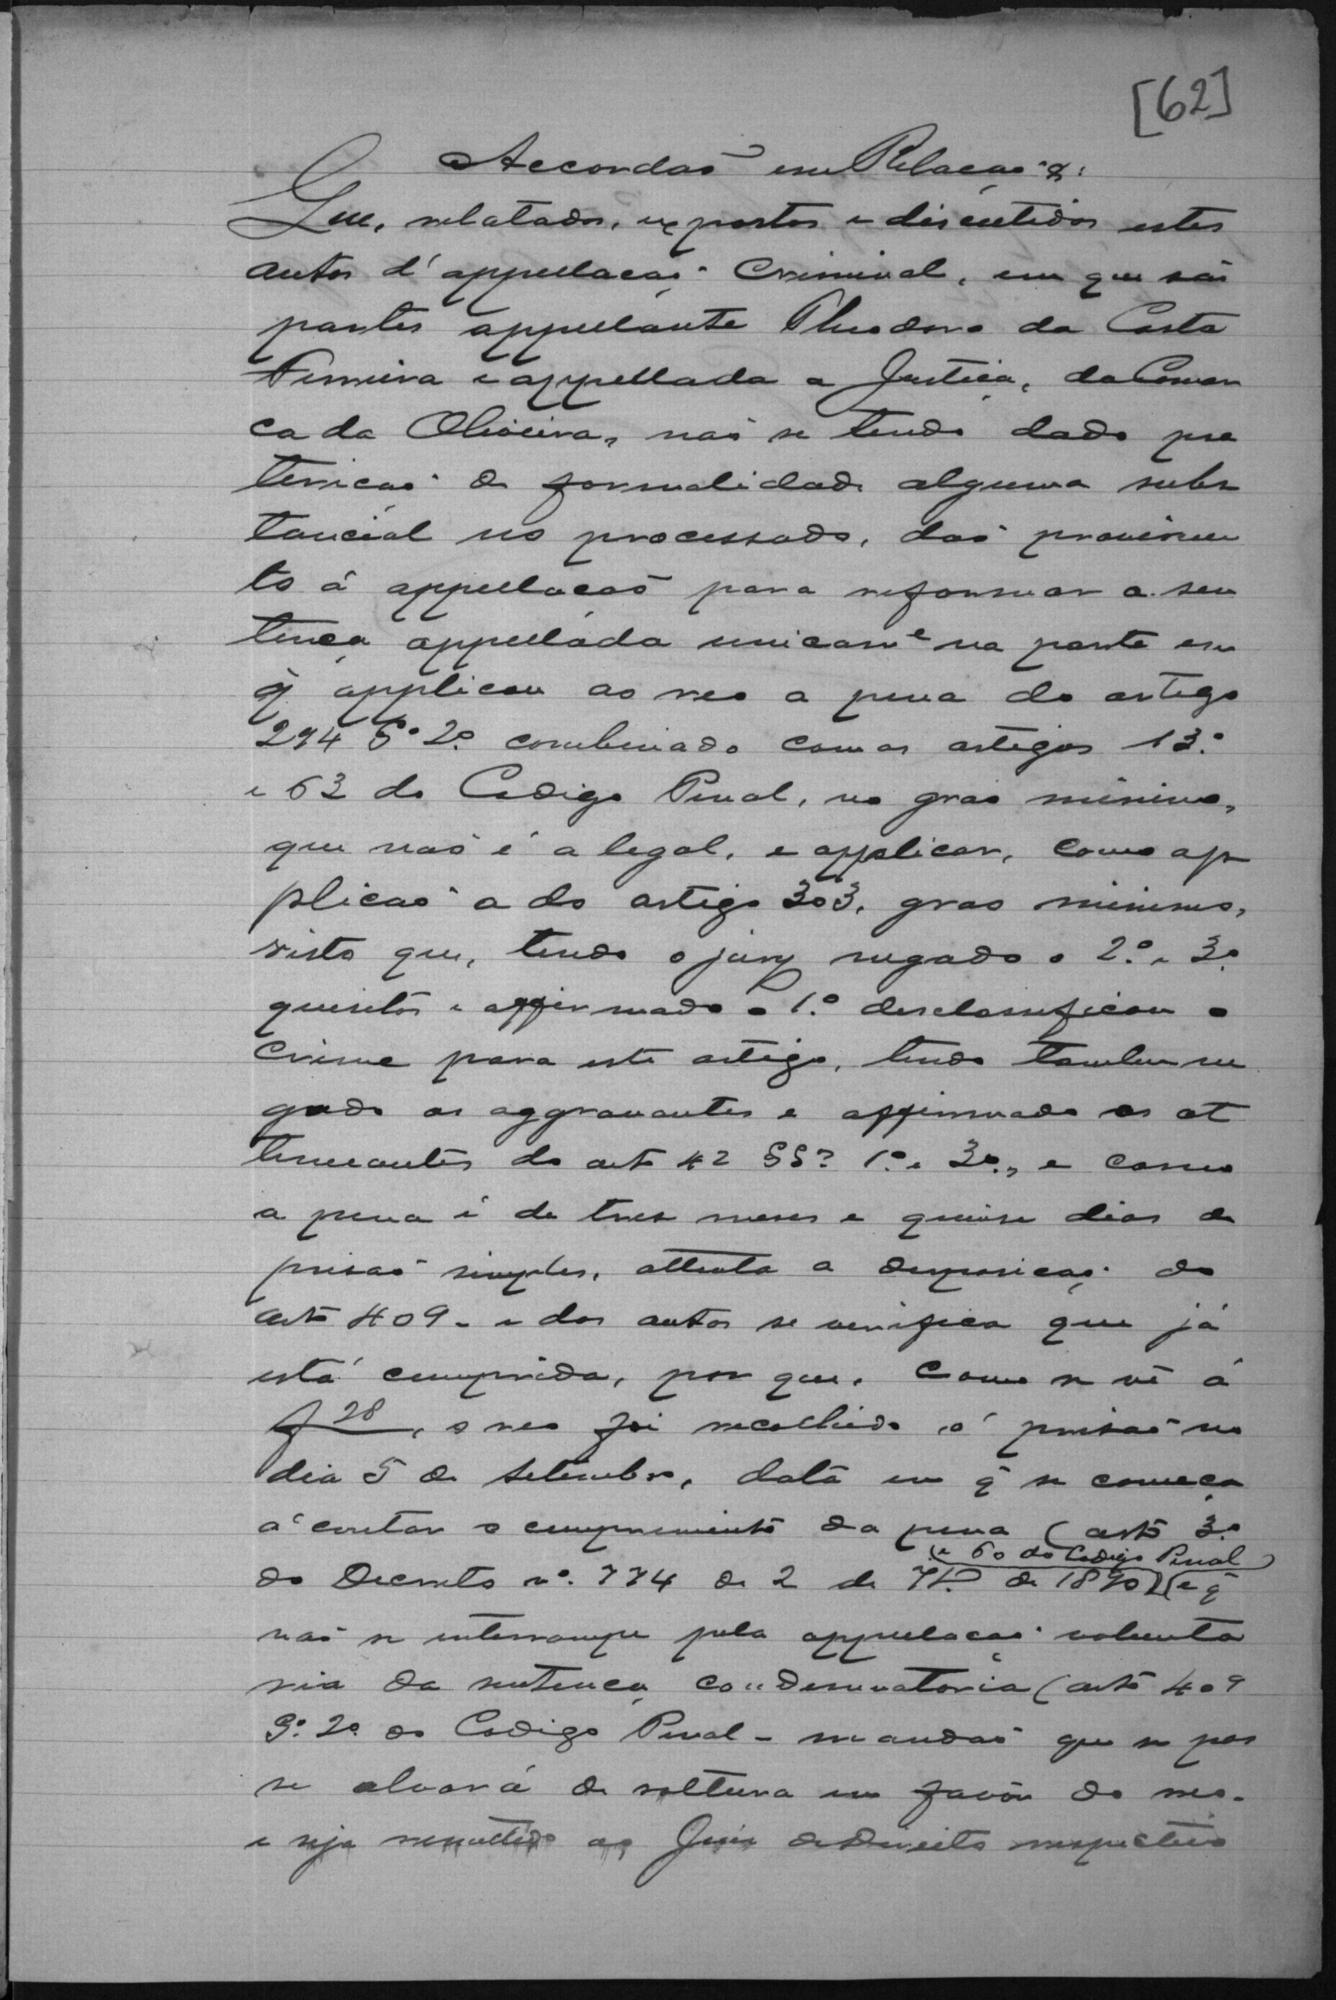 [62]
Accordaõ em Relaçaõ &:
Que, relatados, expostos e discutidos estes
autos d'appellaçaõ criminal, em que saõ
partes appellante Theodoro da Costa
Ferreira e appellada a Justiça, da Comar
ca da Oliveira, naõ se tendo dado pre
tericaõ de formalidade alguma subs
tancial no processado, daõ provimen
to á appellacaõ para reformar a sen
tença appellada unicam.e na parte em
q̃ applicou ao reo a pena do artigo
294 § 2.º combinado com os artigos 13.º
e 63 do Codigo Penal, no grao minimo,
que naõ é a legal, e applicar, como ap
plicaõ a do artigo 303, grao minimo,
visto que, tendo o jury negado o 2.º e 3.º
quesitos e affirmado o 1.º desclassificou o
crime para este artigo, tendo tambem ne
gado as aggravantes e affirmado as at
tenuantes do art.º 42 §§ 1.º e 3.º, e como
a pena é de tres meses e quinse dias de
prisaõ simples, attenta a disposiçaõ do
art.º 409 - e dos autos se verifica que já
está cumprida, por que, como se vê á
f 28, o reo foi recolhido á prisaõ no
dia 5 de Setembro, data em q̃ se começa
á contar o cumprimento da pena (art.º 3.º
(e 60 do Codigo Penal)
do Decreto n.º 774 de 2 de 7b.º de 1890) (e q̃
naõ se interrompe pela appellaçaõ volunta
ria da sentença condemnatoria (art.º 409
§.º 2.º do Codigo Penal - mandaõ que se pas
se alvará de soltura em favor do reo.
e seja remettido ao Juiz de Direito respectivo